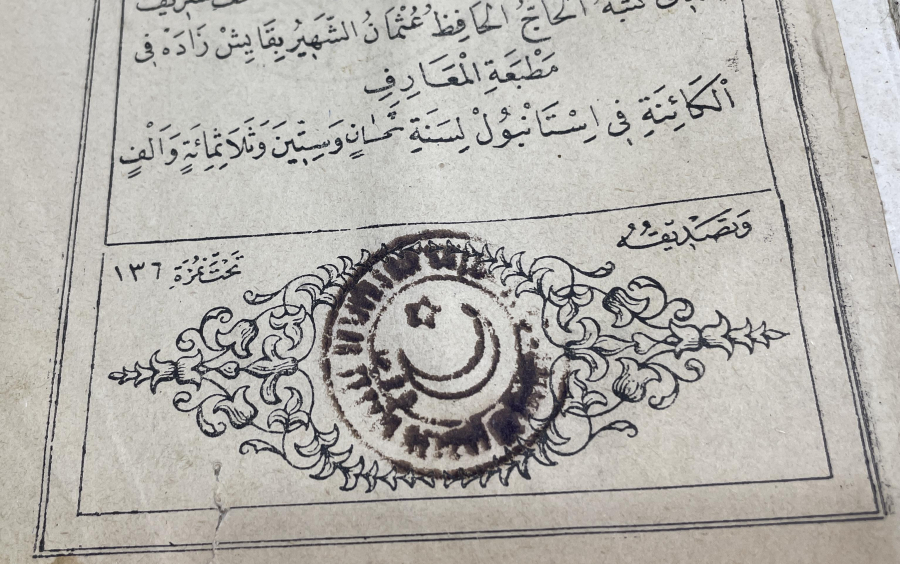 كتبه الحاج الحافظ عثمان الشهير بقايش زاده فى
مَطْبَعَةِ الْمَعَارِفِ
الْكَائِنَةِ فى اِسْتَانْبُولْ لِسَنَةِ ثَمَانٍ وَسِتِّينَ وَثَلَاثِمِائَةٍ وَاَلْفٍ
وَتَصْدِيقُهُ
تَحْتَ نُمْرَةِ ١٣٦